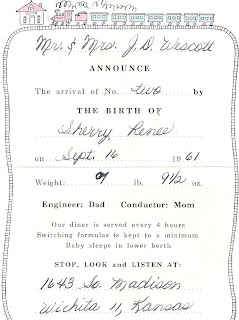 Mr. & Mrs. J.D. Wescott
ANNOUNCE
The arrival of No. two by
THE BIRTH OF
Sherry Renee
on Sept. 16 1961
Weight: 9 lb. 9½ oz.
Engineer: Dad Conductor: Mom
Our diner is served every 4 hours
Switching formulas is kept to a minimum
Baby sleeps in lower berth
STOP, LOOK and LISTEN AT:
1643 So. Madison
Wichita 11, Kansas